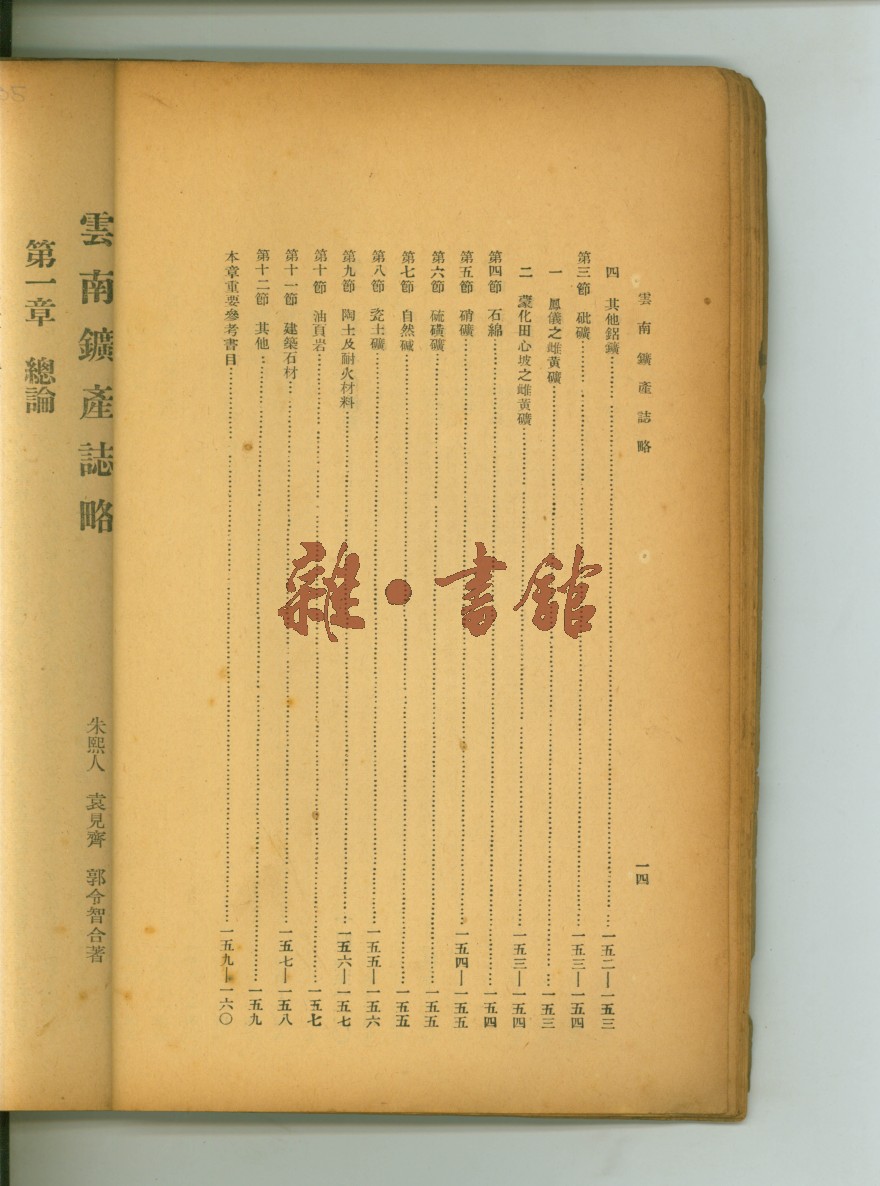 雲南鑛產誌略
一四
四 其他鋁鑛 一五二—一五三
第三節 砒鑛 一五三—一五四
一 鳳儀之雌黃鑛 一五三
二 蒙化田心坡之雌黃鑛 一五三—一五四
第四節 石綿 一五四
第五節 硝鑛 一五四—一五五
第六節 硫磺鑛 一五五
第七節 自然碱 一五五
第八節 瓷土鑛 一五五—一五六
第九節 陶土及耐火材料 一五六—一五七
第十節 油頁岩 一五七
第十一節 建築石材 一五七—一五八
第十二節 其他 一五九
本章重要參考書目 一五九—一六〇
雲南鑛產誌略
朱熙人 袁見齊 郭令智合著
第一章 總論
雜·書館